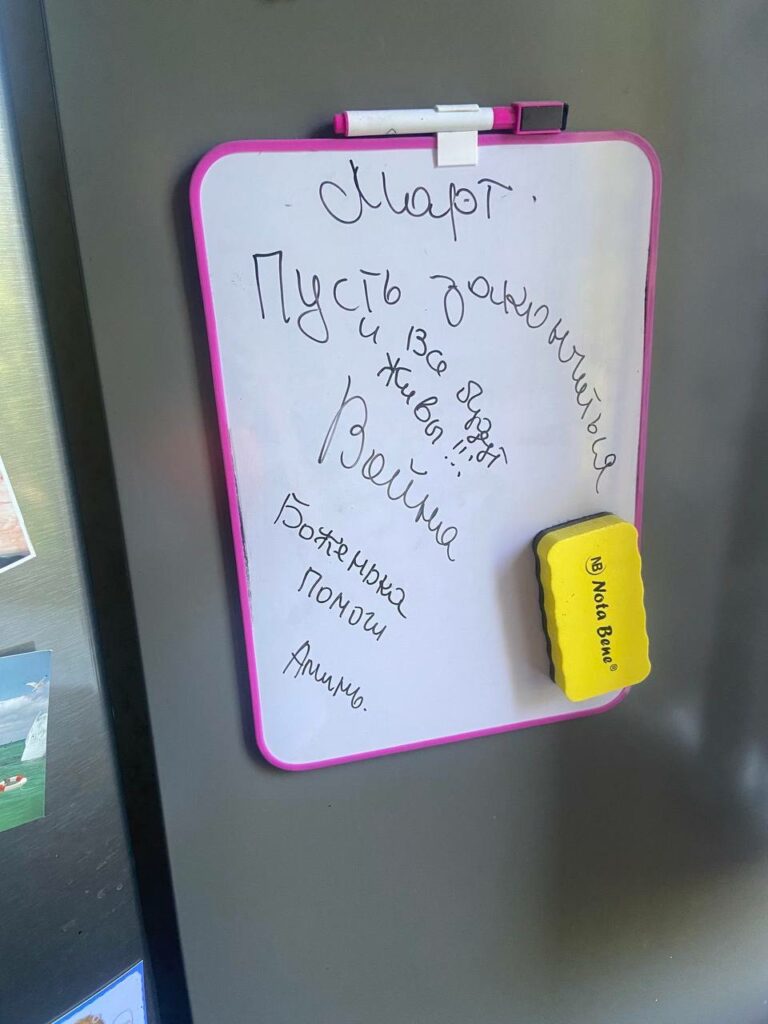 Март.
Пусть закончиться
и все будут
живы!!!...
Война
Боженька
помоги
Аминь.
NB Nota Bene®